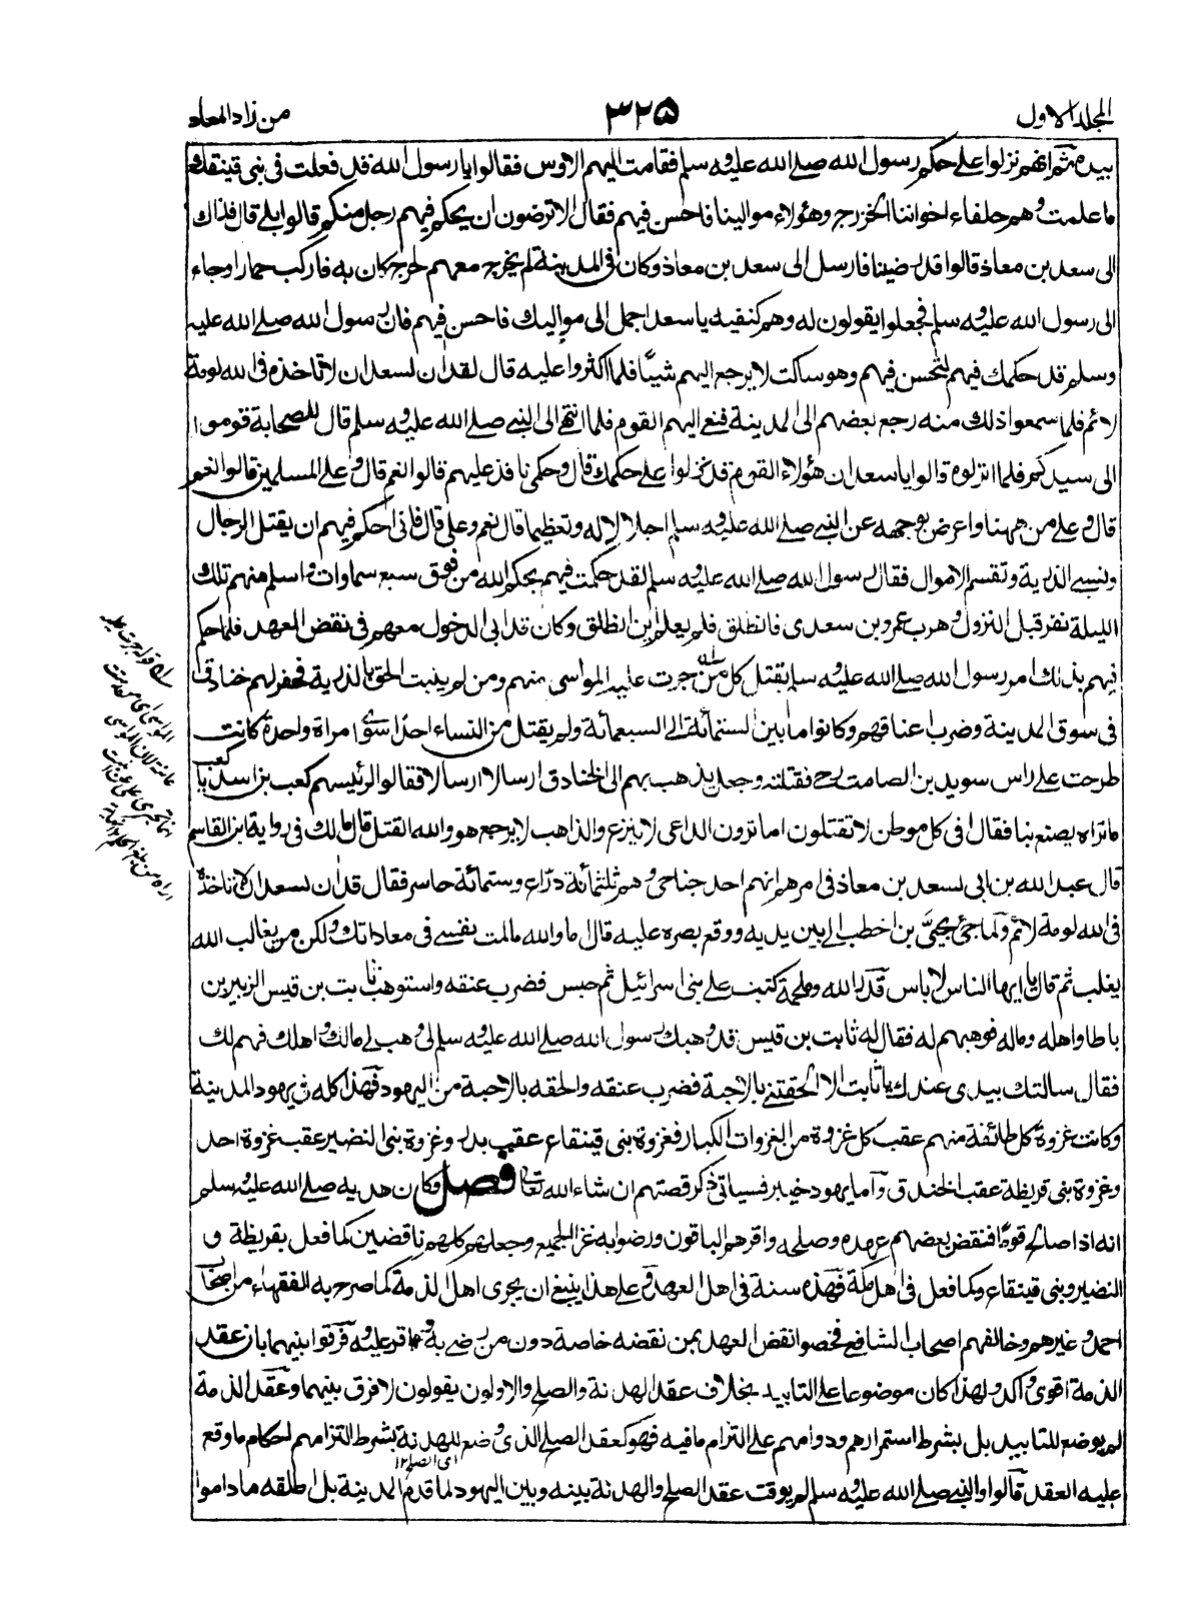 المجلد الاول
۳۲۵
من زاد المعاد
بيده ثم انهم نزلوا على حكم رسول الله صلے الله عليه وسلم فقامت اليهم الاوس فقالوا يا رسول الله قد فعلت فى بنى قينقاع
ما علمت وهم حلفاء اخواننا الخزرج وهؤلاء موالينا فاحسن فيهم فقال الا ترضون ان يحكم فيهم رجل منكم قالوا بلے قال فذاك
الى سعد بن معاذ قالوا قد رضينا فارسل الى سعد بن معاذ وكان فى المدينة لم يخرج معهم لجرح كان به فاركب حمارا وجاء
الى رسول الله عليه وسلم فجعلوا يقولون له وهم كنفيه يا سعد اجمل الى مواليك فاحسن فيهم فان رسول الله صلے الله عليه
وسلم قد حكمك فيهم لتحسن فيهم وهو ساكت لا يرجع اليهم شيئا فلما اكثروا عليه قال لقد ان لسعد ان لا تاخذه فى الله لومة
لائم فلما سمعوا ذلك منه رجع بعضهم الى المدينة فنعى اليهم القوم فلما انتهى الى النبے صلے الله عليه وسلم قال للصحابة قوموا
الى سيدكم فلما انزلوه قالوا يا سعد ان هؤلاء القوم قد نزلوا على حكمك قال وحكمى نافذ عليهم قالوا نعم قال وعلى المسلمين قالوا نعم
قال وعلى من ههنا واعرض بوجهه عن النبے صلے الله عليه وسلم اجلالا له وتعظيما قال نعم وعلى قال فانى احكم فيهم ان يقتل الرجال
وتسبے الذرية وتقسم الاموال فقال رسول الله صلے الله عليه وسلم لقد حكمت فيهم بحكم الله من فوق سبع سماوات واسلم منهم تلك
الليلة نفر قبل النزول وهرب عمرو بن سعدى فانطلق فلم يعلم اين انطلق وكان قد ابى الدخول معهم فى نقض العهد فلما حكم
فيهم بذلك امر رسول الله صلے الله عليه وسلم بقتل كل من جرت عليه المواسى منهم ومن لم ينبت الحق بالذرية فحفر لهم خنادق
فى سوق المدينة وضرب اعناقهم وكانوا ما بين الستمائة الى السبعمائة ولم يقتل من النساء احدا سوى امراة واحدة كانت
طرحت على راس سويد بن الصامت رحى فقتلته وجعل يذهب بهم الى الخنادق ارسالا ارسالا فقالوا لرئيسهم كعب بن اسد يا كعب
ما تراه يصنع بنا فقال افى كل موطن لا تعقلون اما ترون الداعى لا ينزع والذاهب لا يرجع هو والله القتل قال مالك فى رواية ابن القاسم
قال عبد الله بن ابى لسعد بن معاذ فى امرهم انهم احد جناحى وهم ثلثمائة دراع وستمائة حاسر فقال قد ان لسعد ان لا تاخذه
فى الله لومة لائم ولما جئ بحيى بن اخطب الى بين يديه ووقع بصره عليه قال اما والله مالمت نفسے فى معاداتك ولكن من يغالب الله
يغلب ثم قال يا ايها الناس لا باس قدر الله وملحمة كتبت على بنى اسرائيل ثم حبس فضرب عنقه واستوهب ثابت بن قيس الزبير بن
باطا واهله وماله فوهبهم له فقال له ثابت بن قيس قد وهبك رسول الله صلے الله عليه وسلم لى وهب لى مالك واهلك فهم لك
فقال سالتك بيدى عندك يا ثابت الا الحقتنے بالاحبة فضرب عنقه والحقه بالاحبة من اليهود فهذا كله فى يهود المدينة
وكانت غزوة كل طائفة منهم عقب كل غزوة من الغزوات الكبار فغزوة بنى قينقاع عقب بدر وغزوة بنى النضير عقب غزوة احد
وغزوة بنى قريظة عقب الخندق واما يهود خيبر فسياتى ذكر قصتهم ان شاء الله تعالى فصل وكان هديه صلے الله عليه وسلم
انه اذا صالح قوما فنقض بعضهم عهده وصلحه واقرهم الباقون ورضوا به غزا الجميع وجعلهم كلهم ناقضين كما فعل بقريظة و
النضير وبنى قينقاع وكما فعل فى اهل مكة فهذه سنة فى اهل العهد وعلى هذا ينبغى ان يجرى اهل الذمة كما صرح به الفقهاء من اصحاب
احمد وغيرهم وخالفهم اصحاب الشافعى فخصوا نقض العهد بمن نقضه خاصة دون من رضى به واقر عليه وفرقوا بينهما بان عقد
الذمة اقوى واكد ولهذا كان موضوعا على التابيد بخلاف عقد الهدنة والصلح والاولون يقولون لا فرق بينهما وعقد الذمة
لم يوضع للتابيد بل بشرط استمرارهم ودوامهم على التزام ما فيه فهو كعقد الصلح الذى وضع للهدنة بشرط التزامهم احكام ما وقع
اى الصلح ۱۲
عليه العقد قالوا والنبے صلے الله عليه وسلم لم يوقت عقد الصلح والهدنة بينه وبين اليهود لما قدم المدينة بل اطلقه ما داموا